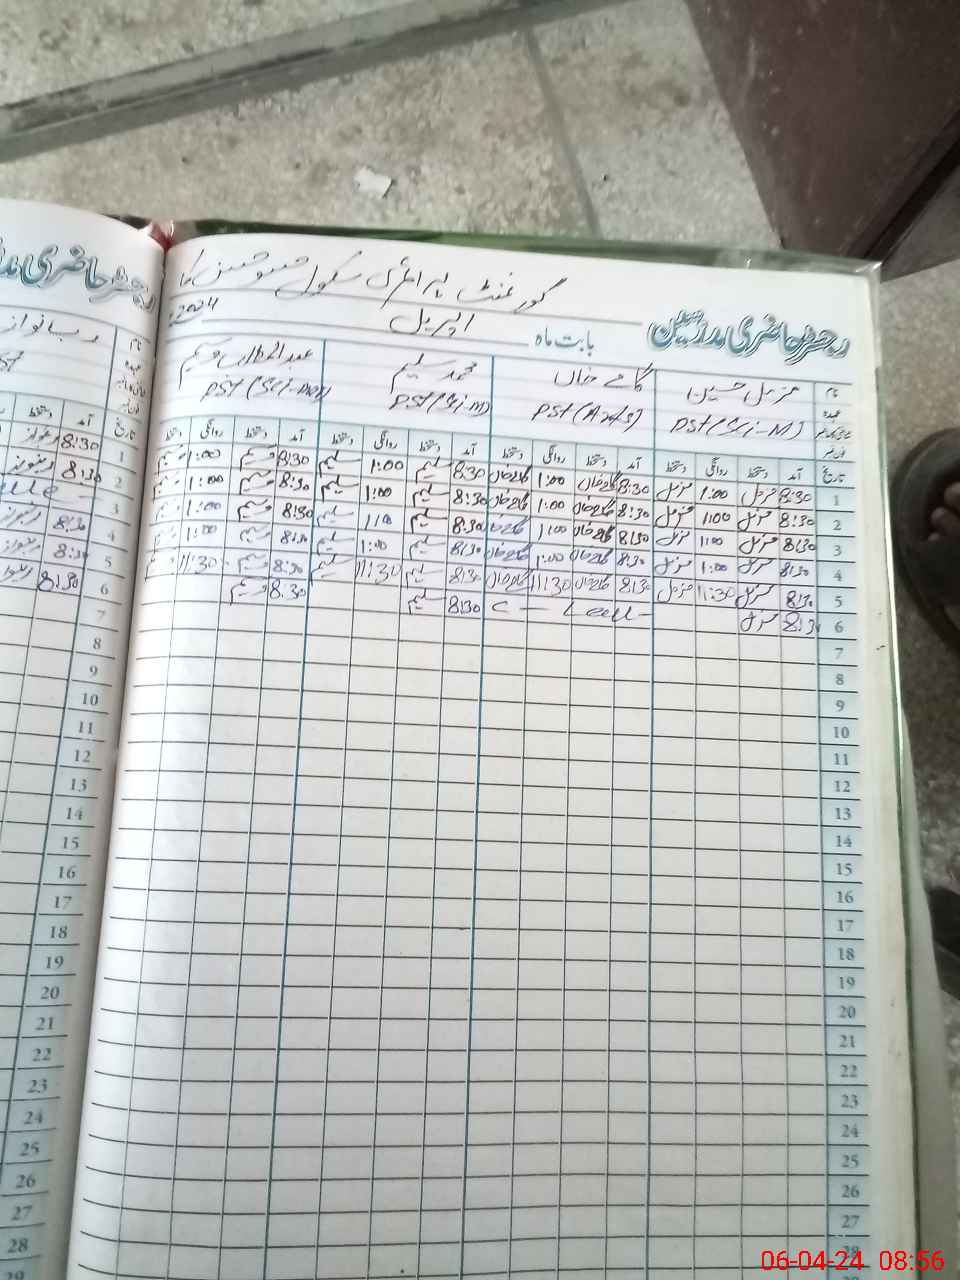 گورنمنٹ پرائمری سکول
رجسٹر حاضری مدرسین بابت ماہ اپریل 2024
نام مزمل حسین گامے خان محمد سلیم عبدالخالق وسیم
عہدہ PST (Sci-M) PST (Arts) PST (Sci-M) PST (Sci-
تاریخ آمد دستخط روانگی دستخط آمد دستخط روانگی دستخط آمد دستخط روانگی دستخط آمد دستخط روانگی دستخط
1 8:30 مزمل 1:00 مزمل 8:30 گامے خان 1:00 گامے خان 8:30 سلیم 1:00 سلیم 8:30 وسیم 1:00 وسیم
2 8:30 مزمل 1:00 مزمل 8:30 گامے خان 1:00 گامے خان 8:30 سلیم 1:00 سلیم 8:30 وسیم 1:00 وسیم
3 8:30 مزمل 1:00 مزمل 8:30 گامے خان 1:00 گامے خان 8:30 سلیم 1:0 سلیم 8:30 وسیم 1:00 وسیم
4 8:30 مزمل 1:00 مزمل 8:30 گامے خان 1:00 گامے خان 8:30 سلیم 1:00 سلیم 8:30 وسیم 1:00 وسیم
5 8:30 مزمل 11:30 مزمل 8:30 گامے خان 11:30 گامے خان 8:30 سلیم 11:30 سلیم 8:30 وسیم 11:30 وسیم
6 8:30 مزمل C - Leave - 8:30 سلیم 8:30 وسیم
7
8
9
10
11
12
13
14
15
16
17
18
19
20
21
22
23
24
25
26
27
28
رجسٹر حاضری
نام رب نواز
عہدہ
تاریخ آمد دستخط
1 8:30
2 8:30
3
4 8:30
5 8:30
6 8:30
7
8
9
10
11
12
13
14
15
16
17
18
19
20
21
22
23
24
25
26
27
28
29
06-04-24 08:56